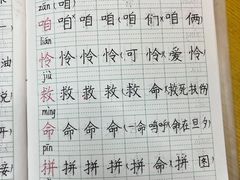 zán
咱 咱 咱 (咱们)(咱俩
lián
怜 怜 怜 怜 (可怜)(爱怜
jiù
救 救 救 救 救 (救死扶伤
mìng
命 命 命 命 (一命呜呼)(命在旦夕
pīn
拼 拼 拼 拼 拼 命)(拼图)